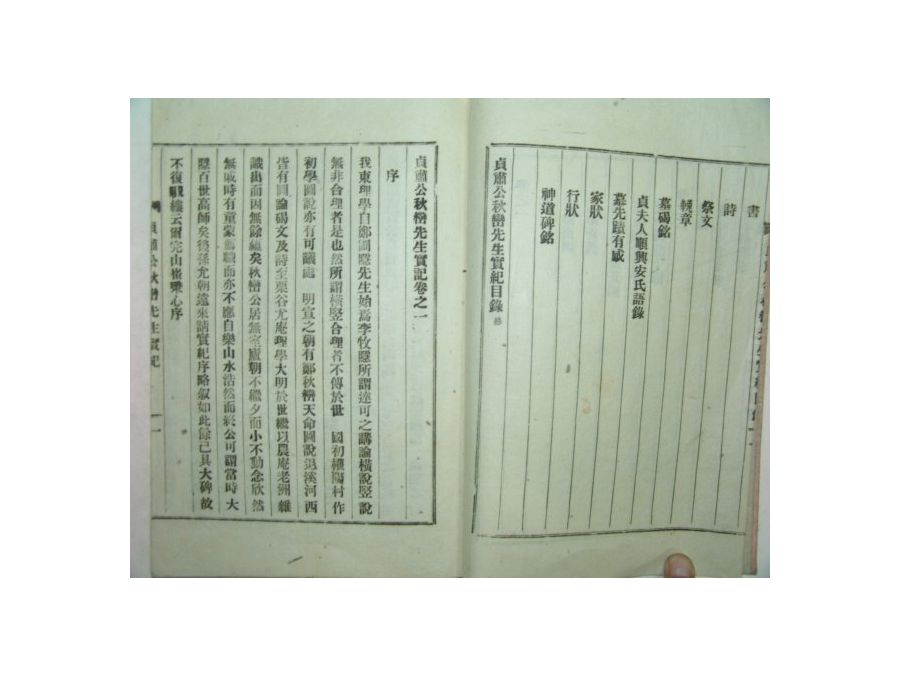 書
詩
祭文
輓章
墓碣銘
貞夫人順興安氏語錄
墓先蹟有感
家狀
行狀
神道碑銘
貞肅公秋巒先生實紀目錄 終
貞肅公秋巒先生實記卷之一
序
我東理學自鄭圃隱先生始焉李牧隱所謂達可之講論橫說竪說
無非合理者是也然所謂橫竪合理者不傳於世 國初權陽村作
初學圖說亦有可議處 明宣之朝有鄭秋巒天命圖說退溪河西
皆有圖論碣文及詩至栗谷尤庵理學大明於世繼以農庵老洲雜
識出而因無餘蘊矣秋巒公居無室廬朝不繼夕而小不動念欣然
無戚時有童蒙馬職而亦不應自樂山水浩然而終公可謂當時大
隱百世高師矣後孫允朝遠來請實紀序略叙如此餘已具大碑故
不復覼縷云爾完山崔秉心序
貞肅公秋巒先生實記 一